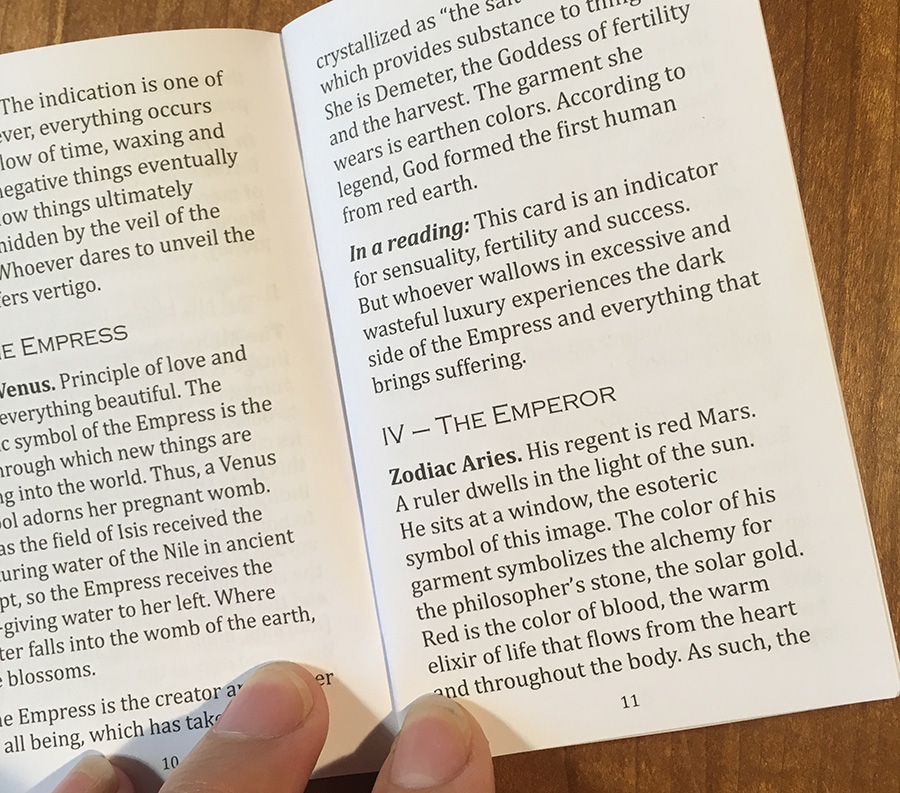 The indication is one of
everything occurs
of time, waxing and
negative things eventually
things ultimately
hidden by the veil of the
Whoever dares to unveil the
vertigo.
EMPRESS
Venus. Principle of love and
everything beautiful. The
symbol of the Empress is the
through which new things are
into the world. Thus, a Venus
adorns her pregnant womb.
as the field of Isis received the
water of the Nile in ancient
so the Empress receives the
-giving water to her left. Where
falls into the womb of the earth,
blossoms.
Empress is the creator
all being, which has
10
crystallized as “the salt
which provides substance to
She is Demeter, the Goddess of fertility
and the harvest. The garment she
wears is earthen colors. According to
legend, God formed the first human
from red earth.
In a reading: This card is an indicator
for sensuality, fertility and success.
But whoever wallows in excessive and
wasteful luxury experiences the dark
side of the Empress and everything that
brings suffering.
IV – THE EMPEROR
Zodiac Aries. His regent is red Mars.
A ruler dwells in the light of the sun.
He sits at a window, the esoteric
symbol of this image. The color of his
garment symbolizes the alchemy for
the philosopher’s stone, the solar gold.
Red is the color of blood, the warm
elixir of life that flows from the heart
and throughout the body. As such, the
11